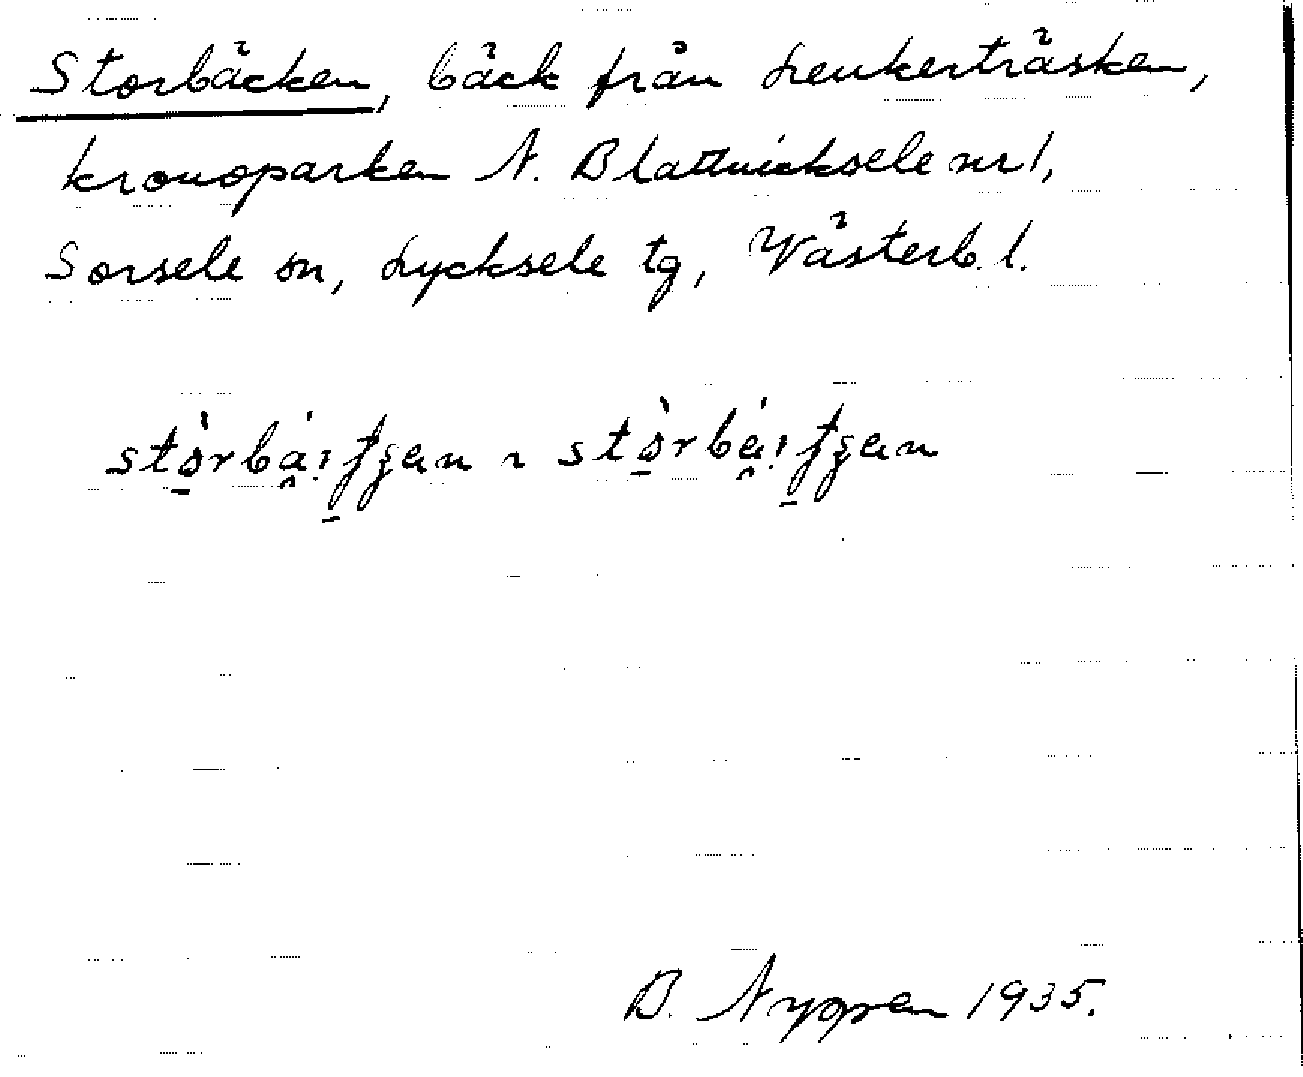 Storbäcken, bäck från Lenkerträsken,
kronoparken N. Blattnicksele nr 1,
Sorsele sn, Lycksele tg, Västerb. l.
B. Nyggren 1935.